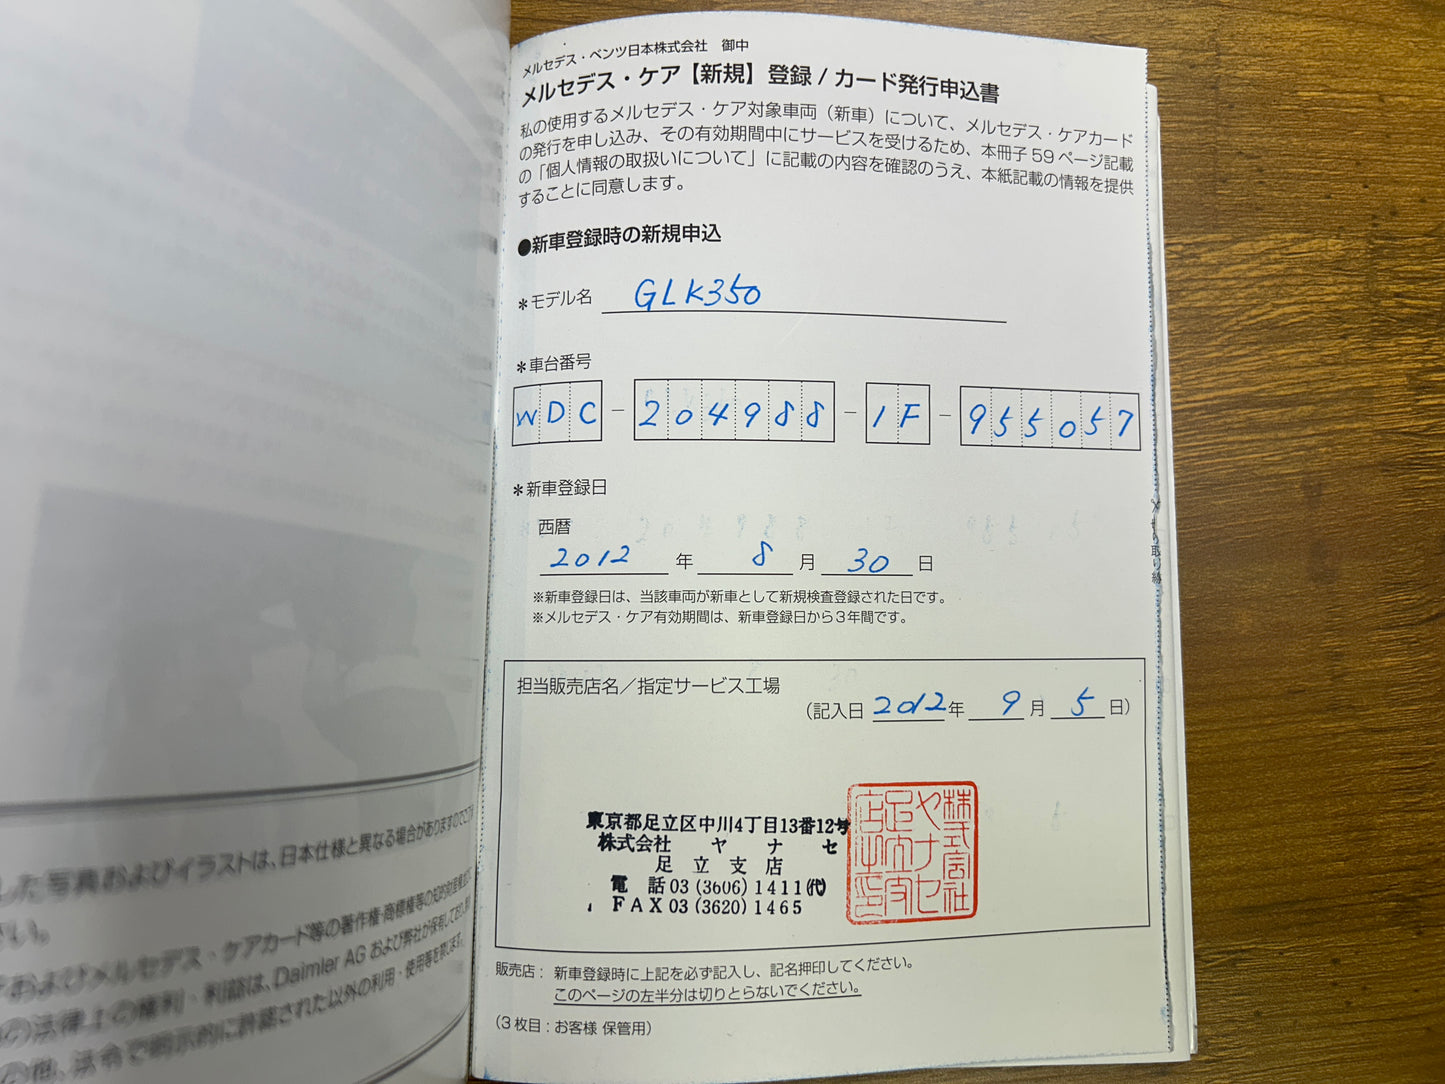 メルセデス・ベンツ日本株式会社　御中
メルセデス・ケア【新規】登録 / カード発行申込書
私の使用するメルセデス・ケア対象車両（新車）について、メルセデス・ケアカード
の発行を申し込み、その有効期間中にサービスを受けるため、本冊子 59 ページ記載
の「個人情報の取扱いについて」に記載の内容を確認のうえ、本紙記載の情報を提供
することに同意します。
●新車登録時の新規申込
＊モデル名 GLK350
＊車台番号
WDC － 204988 － 1F － 955057
＊新車登録日
西暦
2012 年 8 月 30 日
※新車登録日は、当該車両が新車として新規検査登録された日です。
※メルセデス・ケア有効期間は、新車登録日から３年間です。
担当販売店名／指定サービス工場
(記入日 2012 年 9 月 5 日)
東京都足立区中川4丁目13番12号
株式会社　ヤ　ナ　セ
足 立 支 店
電　話 03 (3606) 1411 (代)
ＦＡＸ 03 (3620) 1465
株式会社
ヤナセ
足立支
店之印
販売店： 新車登録時に上記を必ず記入し、記名押印してください。
このページの左半分は切りとらないでください。
（３枚目：お客様 保管用）
した写真およびイラストは、日本仕様と異なる場合がありますのでご了
さい。
およびメルセデス・ケアカード等の著作権・商標権等の知的財産権
の法律上の権利・利益は、Daimler AG および弊社が保有しており、
の他、法令で明示的に許諾された以外の利用・使用等を禁じます。